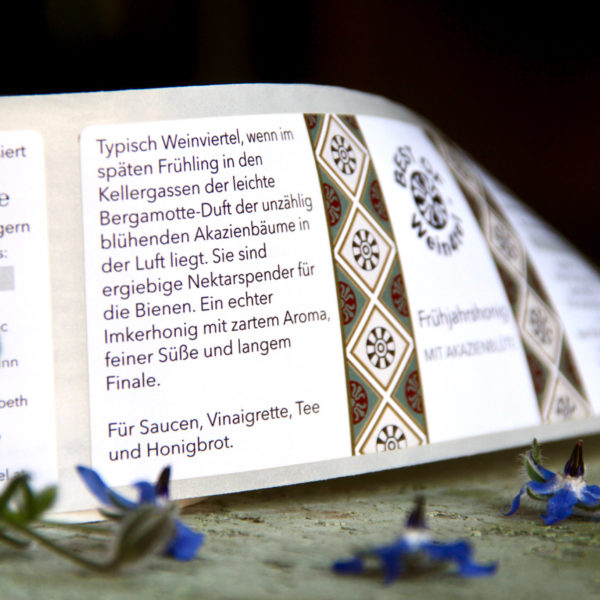 siert
e
gern
s:
c
nn
oeth
Typisch Weinviertel, wenn im
späten Frühling in den
Kellergassen der leichte
Bergamotte-Duft der unzählig
blühenden Akazienbäume in
der Luft liegt. Sie sind
ergiebige Nektarspender für
die Bienen. Ein echter
Imkerhonig mit zartem Aroma,
feiner Süße und langem
Finale.
Für Saucen, Vinaigrette, Tee
und Honigbrot.
BEST OF
Weinviertel
Frühjahrshonig
MIT AKAZIENBLÜTE